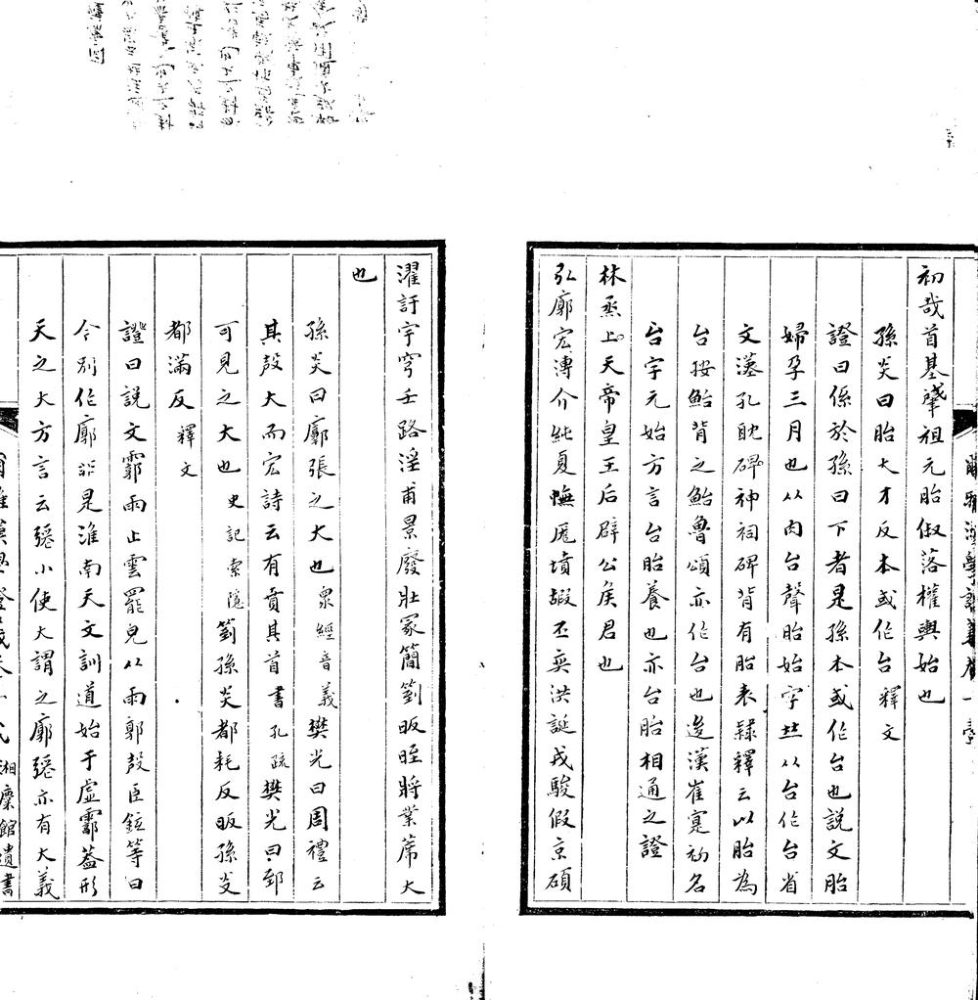 初哉首基肈祖元胎俶落權輿始也
孫炎曰胎大才反本或作台釋文
證曰係於孫曰下者是孫本或作台也説文胎
婦孕三月也从肉台聲胎始字𠀤从台作台省
文漢孔耽碑神祠碑背有胎表隸釋云以胎為
台按鮐背之鮐魯頌亦作台也逡漢崔寔初名
台字元始方言台胎養也亦台胎相通之證
林烝上天帝皇王后辟公矦君也
弘廓宏溥介純夏幠厖墳嘏丕奕洪誕戎駿假京碩
濯訏宇穹壬路淫甫景廢壯冢簡箌昄晊將業席大
也
孫炎曰廓張之大也衆經音義樊光曰周禮云
其殼大而宏詩云有賁其首書孔疏樊光曰郅
可見之大也史記索隱箌孫炎都耗反昄孫炎
都滿反釋文
證曰説文霩雨止雲罷皃从雨郭殼臣鉉等曰
今別作廓非是淮南天文訓道始于虛霩葢形
天之大方言云張小使大謂之廓張亦有大義
爾雅漢學證義卷一 湘麋館遺書